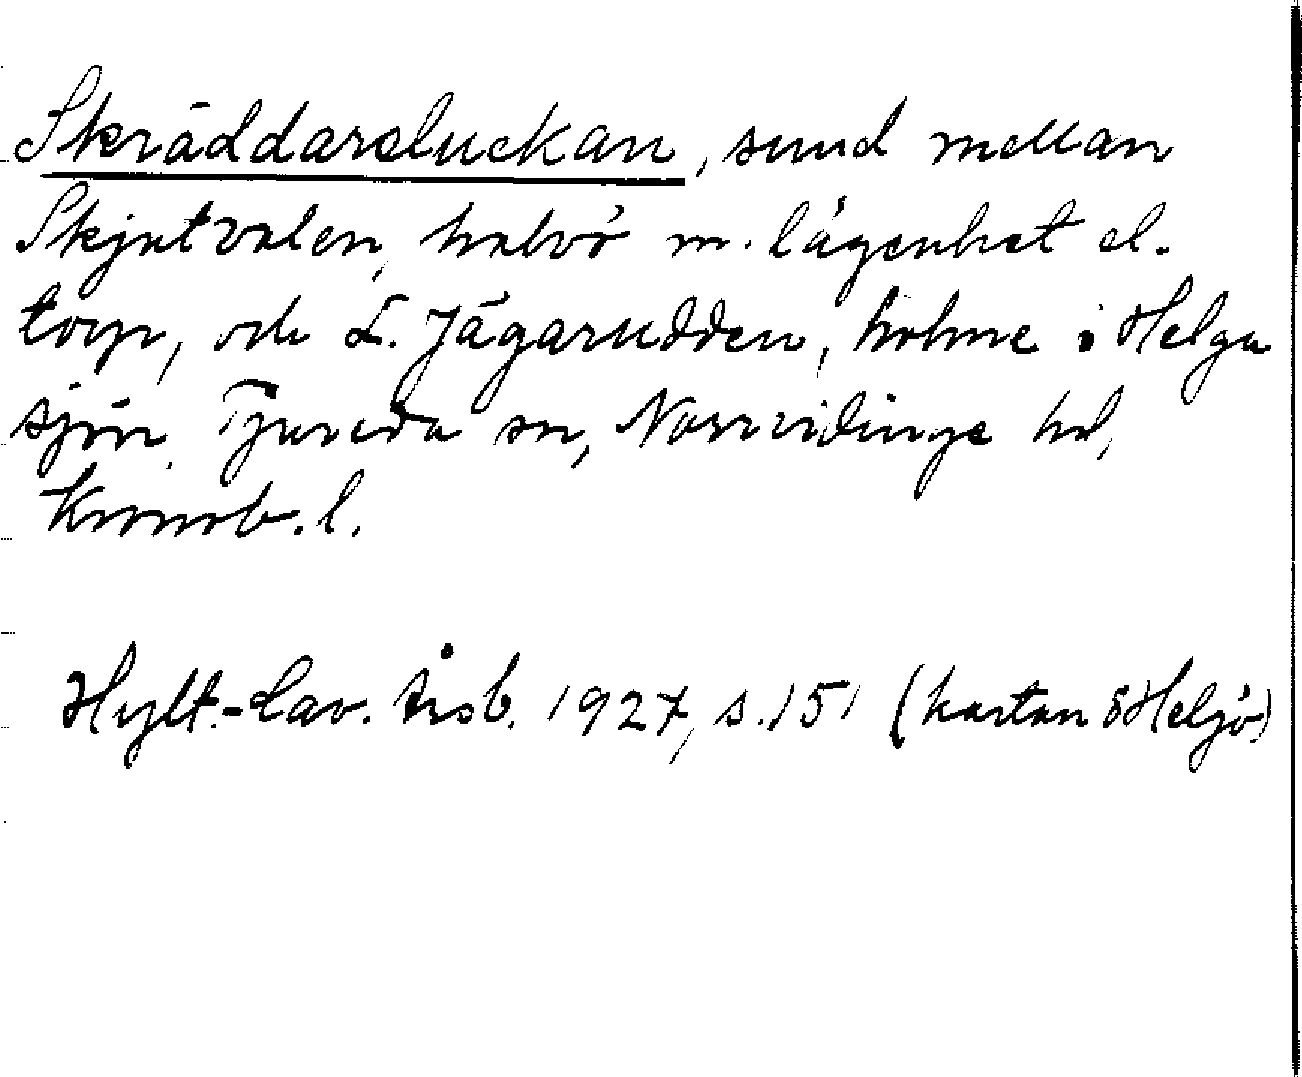 Skräddarsluckan, sund mellan
Skjutvalen, halvö m. lägenhet el.
torp, och L. Jägarudden, holme i Helga
sjön. Tjureda sn, Norrvidinge hd,
Kronob. l.
Hylt.-Cav. årsb. 1927, s. 151 (kartan ö Helgö)